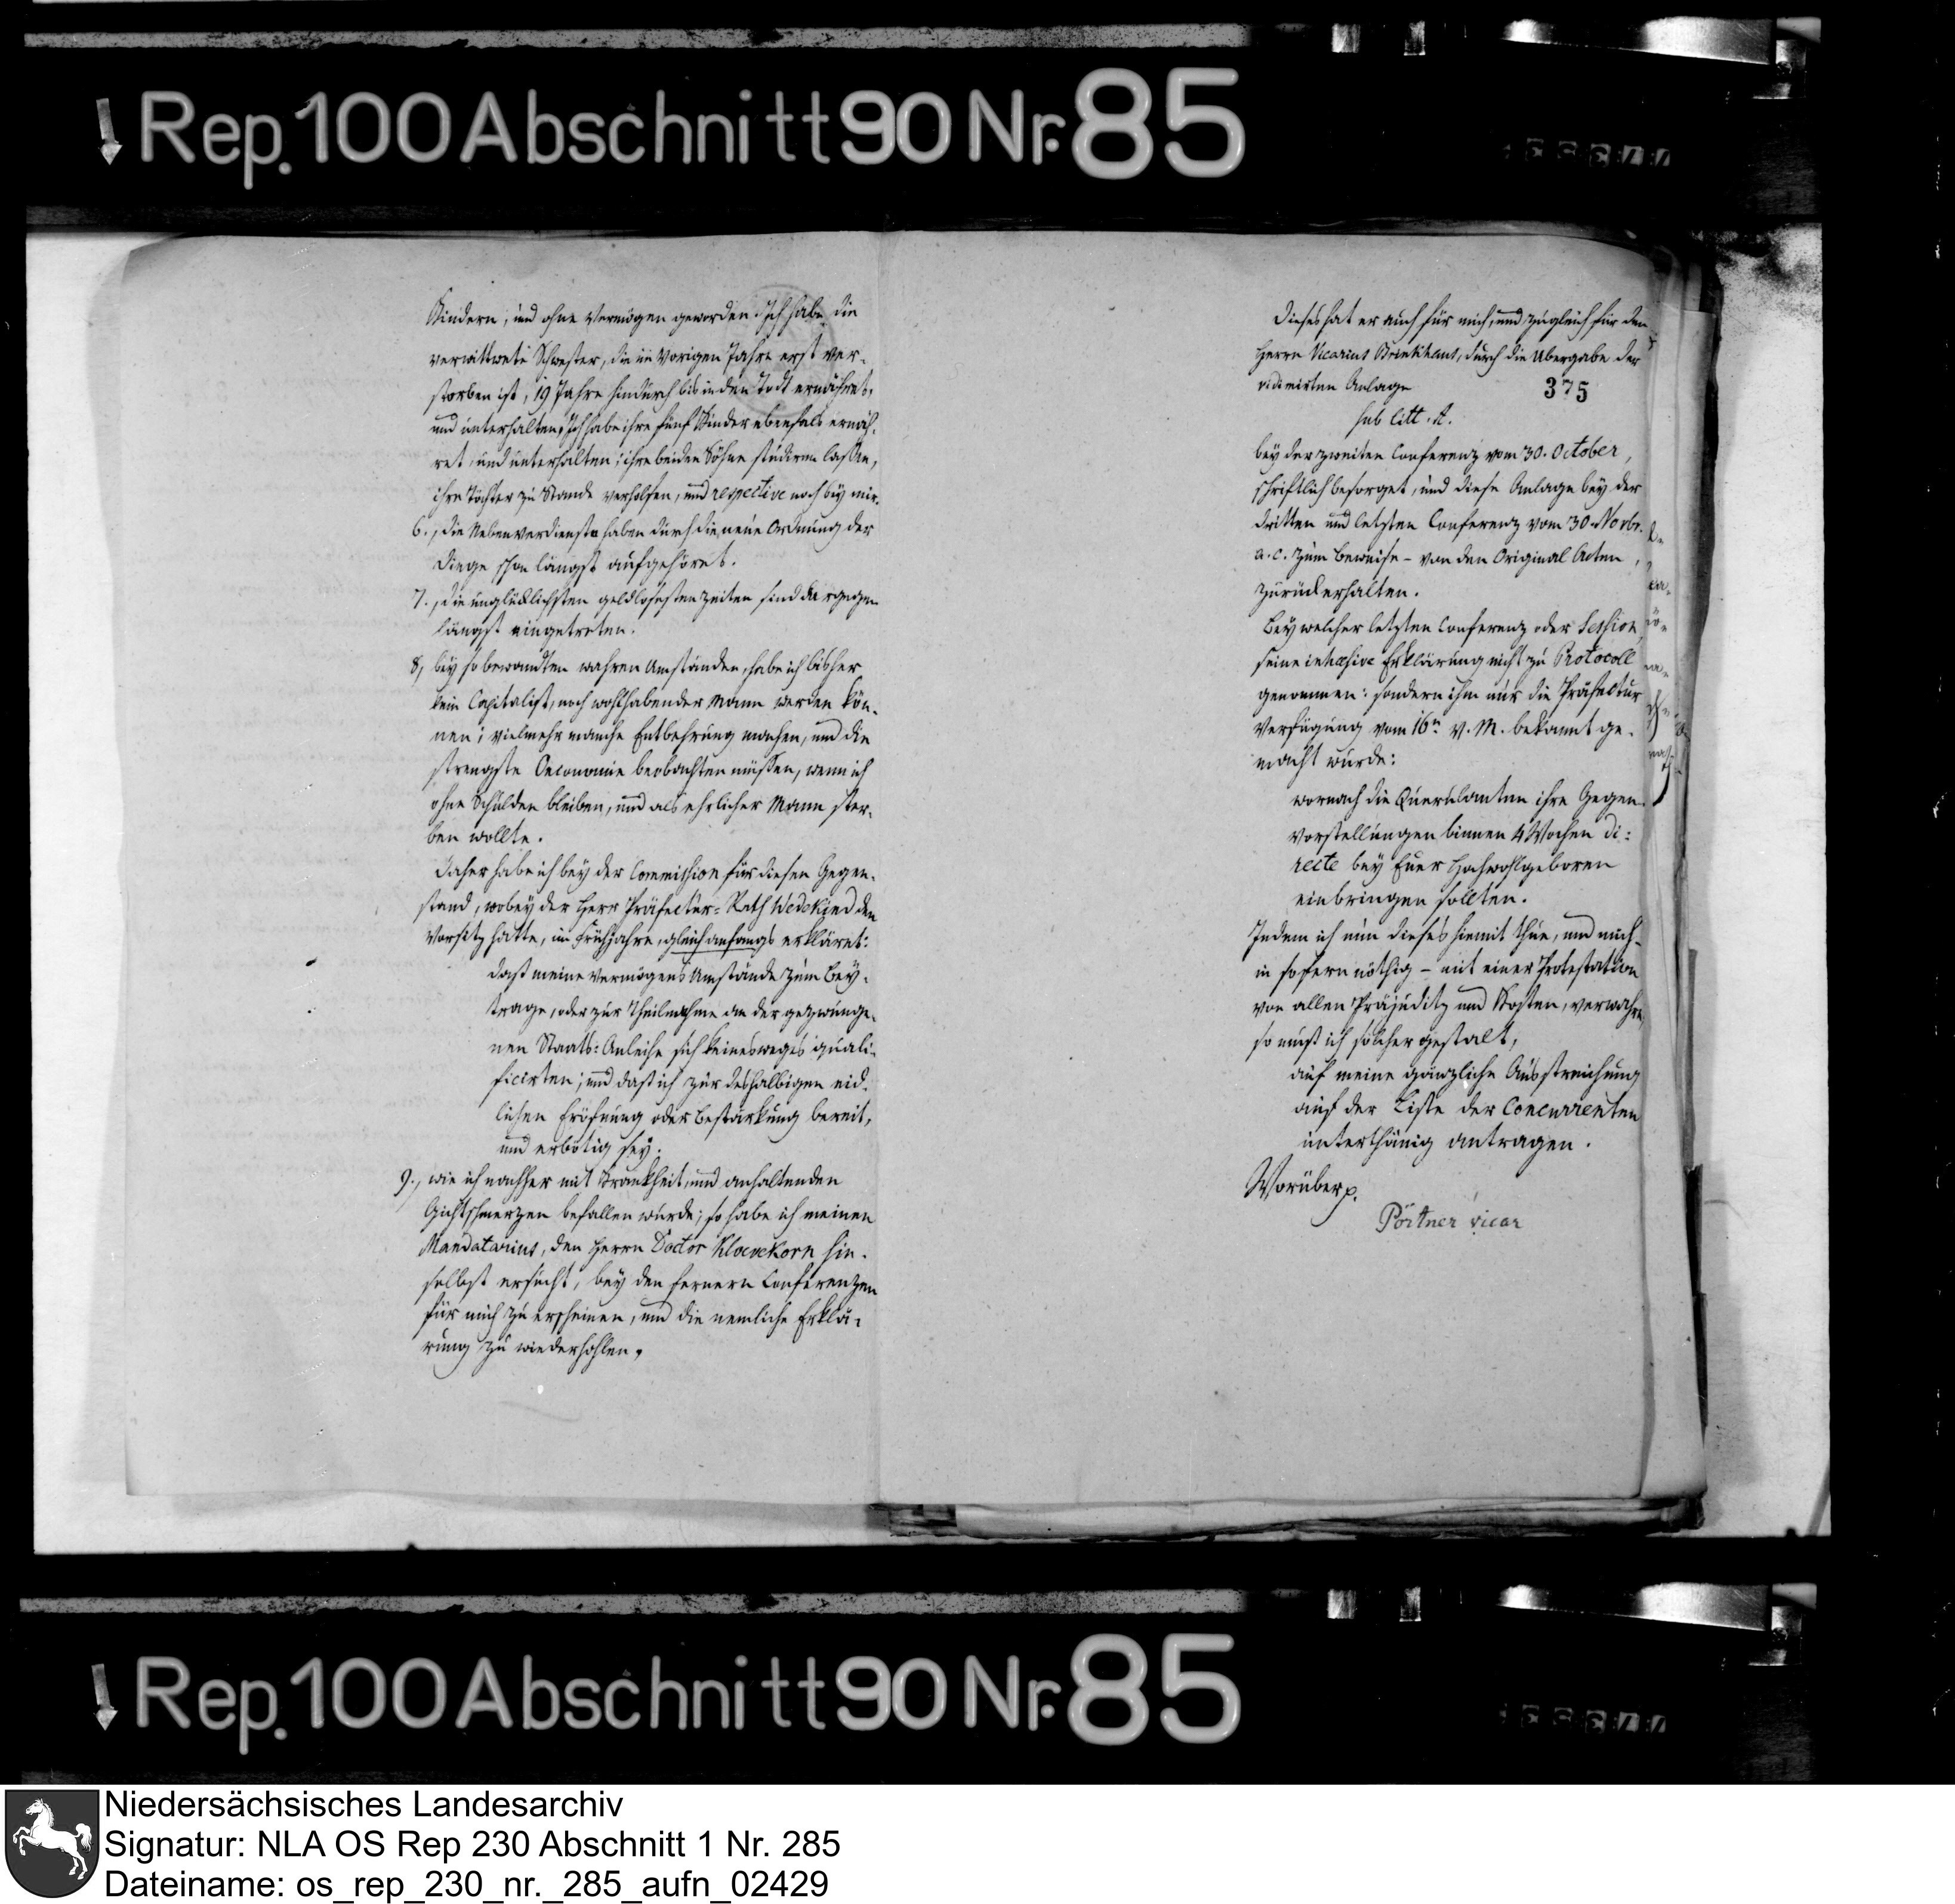 Rep. 100 Abschnitt 90 Nr. 85
Kindern, und ohne Vermögen geworden. Ich habe die
verwittwete Schwester, die im vorigen Jahre erst ver-
storben ist, 19 Jahre hindurch bis in den Todt ernähret,
und unterhalten, Ich habe ihre fünf Kinder ebenfals ernäh-
ret, und unterhalten; ihre beiden Söhne studiren lassen,
ihre Töchter zu Stande verholfen, und respective noch bey mir.
6., die Nebenverdienste haben durch die neue Ordnung der
Dinge schon längst aufgehöret.
7., die unglücklichsten geldlosesten Zeiten sind dargegen
längst eingetreten.
8, bey so bewandten wahren Umständen, habe ich bisher
kein Capitalist, noch wohlhabender Mann werden kön-
nen; vielmehr manche Entbehrung machen, und die
strengste Oeconomie beobachten müßen, wenn ich
ohne Schulden bleiben, und als ehrlicher Mann ster-
ben wollte.
Daher habe ich bey der Commission für diesen Gegen-
stand, wobey der Herr Präfectur-Rath Wedekind den
Vorsitz hatte, im Frühjahre, gleich anfangs erkläret:
daß meine Vermögens Umstände zum Bey-
trage, oder zur Theilnahme an der gezwunge-
nen Staats-Anleihe sich keinesweges quali-
ficirten; und daß ich zur deshalbigen eid-
lichen Eröfnung oder Bestärkung bereit,
und erbötig sey.
9., wie ich nachher mit Krankheit, und anhaltenden
Gichtschmerzen befallen wurde; so habe ich meinen
Mandatarius, den Herrn Doctor Kloevekorn hie-
selbst ersucht, bey den fernern Conferenzen
für mich zu erscheinen, und die nemliche Erklä-
rung zu wiederhohlen.
Dieses hat er auch für mich, und zugleich für den
Herrn Vicarius Brinkhaus, durch die Übergabe der
vidimirten Anlage
375
sub litt. A.
bey der zweiten Conferenz vom 30. October,
schriftlich besorget, und diese Anlage bey der
dritten und letzten Conferenz vom 30. Novbr.
a. c. zum Beweise - von den Original Acten,
zurückerhalten.
Bey welcher letzten Conferenz oder Session
seine Erklärung nicht zu Protocoll
genommen: sondern ihm nur die Präfectur
Verfügung vom 16n v. M. bekannt ge-
macht wurde:
wornach die Querulanten ihre Gegen-
vorstellungen binnen 4 Wochen di-
recte bey Euer Hochwohlgeboren
einbringen sollten.
Indem ich nun dieses hiemit thue, und mich-
in sofern nöthig - mit einer Protestation
von allen Präjuditz und Kosten, verwahre,
so muß ich solchergestalt,
auf meine gänzliche Ausstreichung
auf der Liste der Concurrenten
unterthänig antragen.
Worüber p.
Pörtner vicar
Rep. 100 Abschnitt 90 Nr. 85
Niedersächsisches Landesarchiv
Signatur: NLA OS Rep 230 Abschnitt 1 Nr. 285
Dateiname: os_rep_230_nr._285_aufn_02429